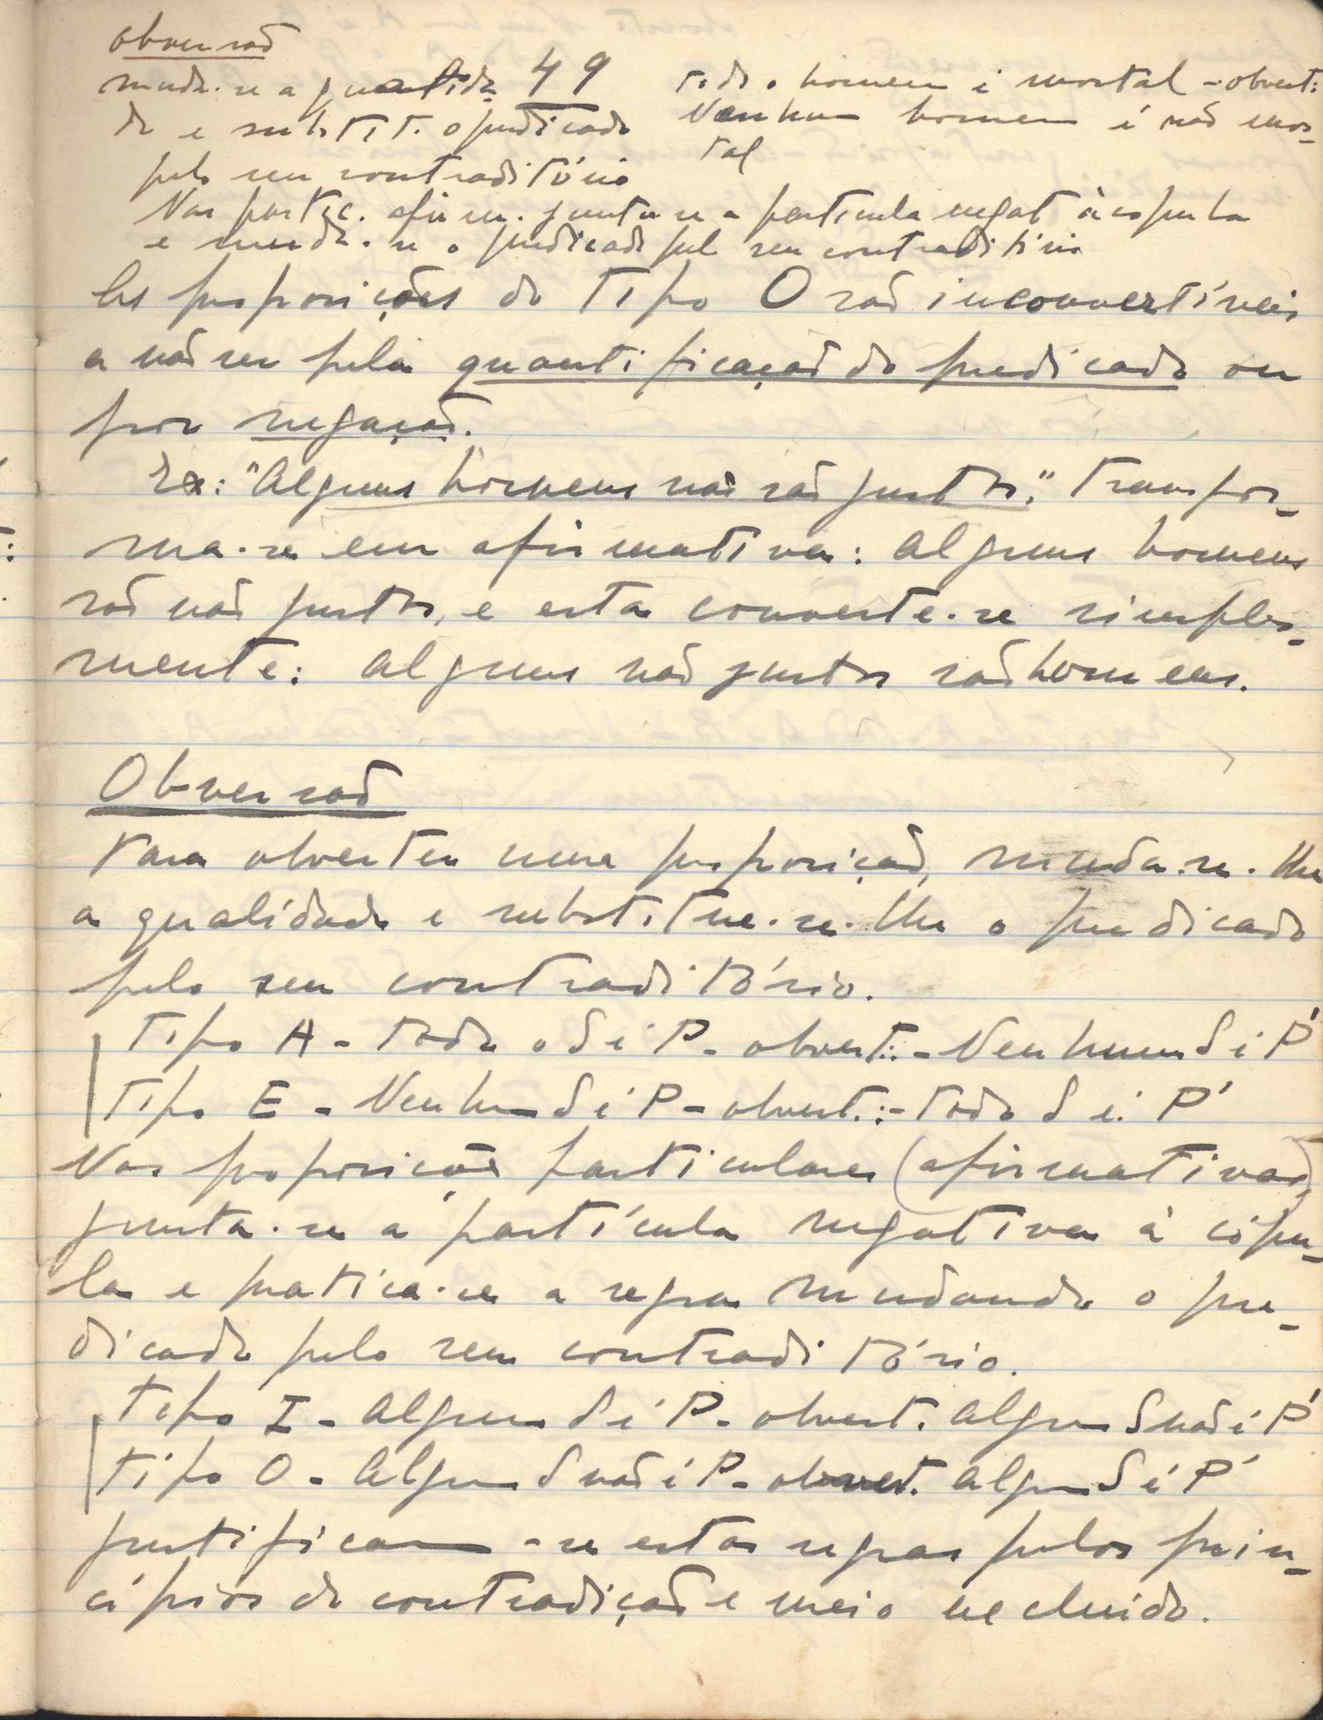 obversão
muda-se a qualida 49
de e substit. o predicado
pelo seu contraditório
todo o homem é mortal - obvert:
Nenhum homem é não mor-
tal
Nas partic. afirm. junta-se a partícula negat à cópula
e muda-se o predicado pelo seu contraditório
As proposições do tipo O são inconvertíveis
a não ser pela quantificação do predicado ou
por negação.
Ex: "Alguns homens não são justos." Transfor-
ma-se em afirmativa: Alguns homens
são não justos, e esta converte-se simples-
mente: Alguns não justos são homens.
Obversão
Para obverter uma proposição, muda-se-lhe
a qualidade e substitue-se-lhe o predicado
pelo seu contraditório.
Tipo A - Todo o S é P - obvert.: - Nenhum S é P'
Tipo E - Nenhum S é P - obvert.: - Todo S é P'
Nas proposições particulares (afirmativas)
junta-se a partícula negativa à cópu-
la e pratica-se a regra mudando o pre-
dicado pelo seu contraditório.
Tipo I - Algum S é P - obvert. Algum S não é P'
Tipo O - Algum S não é P - obvert. Algum S é P'
Justificam-se estas regras pelos prin-
cípios de contradição e meio excluido.